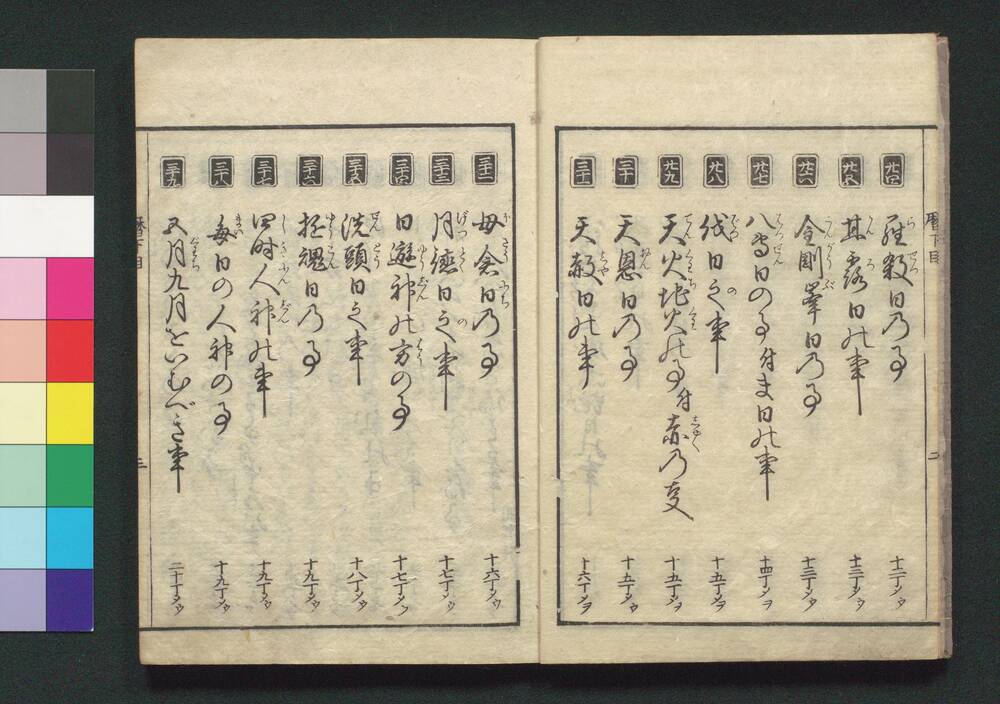 暦下目
廿四 羅殺日乃事 十二丁メウ
廿五 甘露日の事 十三丁メウ
廿六 金剛峯日乃事 十三丁メウ
廿七 八専日の事付ま日の事 十四丁メヲ
廿八 伐日之事 十五丁メヲ
廿九 天火地火の事付 十五丁メヲ
三十 天恩日乃事 十五丁メウ
三十一 天赦日の事 十六丁メヲ
二
三十二 母倉日乃事 十六丁メウ
三十三 月徳日之事 十七丁メウ
三十四 日遊神の方の事 十七丁メウ
三十五 洗頭日之事 十八丁メウ
三十六 招魂日乃事 十九丁メウ
三十七 四時人神の事 十九丁メウ
三十八 毎日の人神の事 十九丁メウ
三十九 五月九月をいむべき事 二十丁メウ
暦下目
三